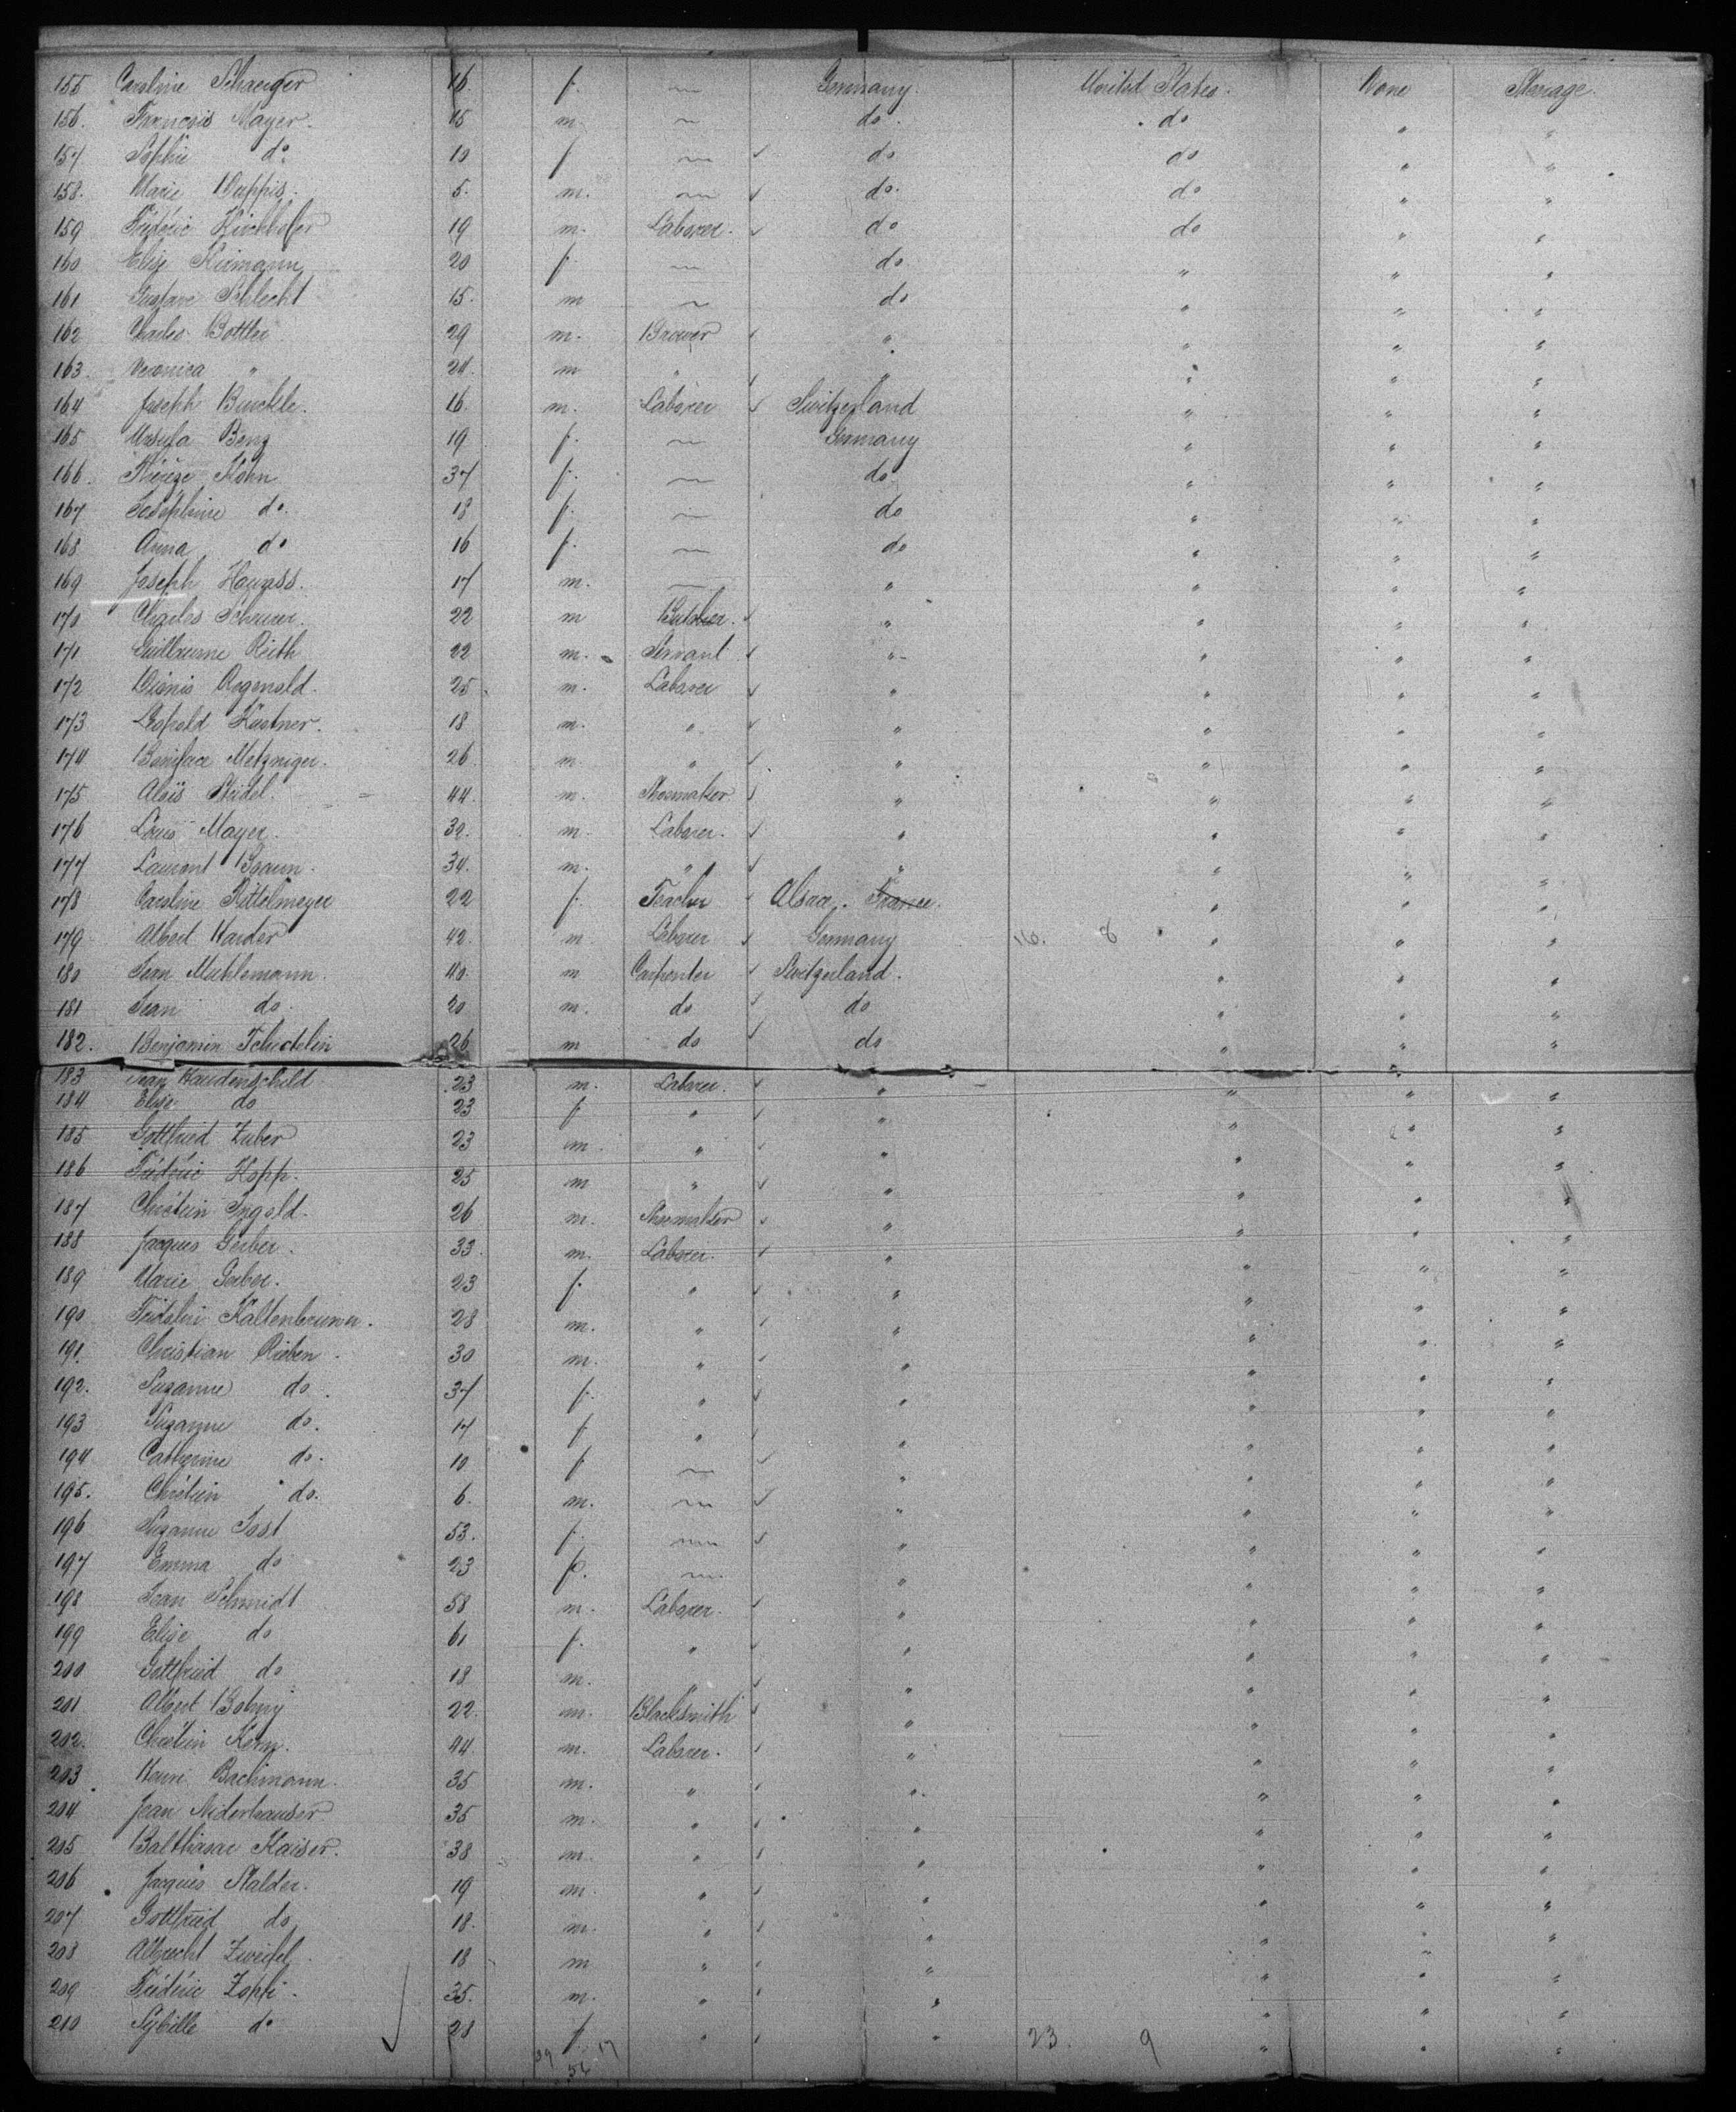 155 Caroline Schaeiger 16. f. ~ Germany. United States. None Steerage.
156. François Mayer. 15 m. ~ do. do " "
157 Sophie do 10 f ~ do do " "
158. Marie 5. m. ~ do. do " "
159 Frédéric Kirchhofer 19 m. Laborer. do do " "
160 Elise 20 f. ~ do " " "
161 Gustave Schlecht 15. m ~ do " " "
162 Charles Bottler 29 m. Brower " " " "
163. Veronica " 28. m " " " " "
164 Joseph Burckle. 16. m. Laborer Switzerland " " "
165 Ursula Benz 19 f. ~ Germany " " "
166. Kohn 37 f. ~ do " " "
167 Joséphine do. 18 f. ~ do " " "
168 Anna do 16 f. ~ do " " "
169 Joseph 17 m. ~ " " " "
170 Charles Scheurer. 22 m Butcher. " " " "
171 Guillaume Reith 22 m. Servant " " " "
172 Dionis 25 m. Laborer " " " "
173 Léopold Kästner. 18 m. " " " " "
174 Boniface Metzniger. 26 m. " " " " "
175 Aloïs Steidel. 44. m. Shoemaker " " " "
176 Louis Mayer. 32. m. Laborer. " " " "
177 Laurent Braun. 34. m. " " " " "
178 Caroline Rittelmeyer 22 f. Teacher Alsace. France. " " "
179 Albert Harder 42. m Laborer Germany 16. 8 " " "
180 Jean Muhlemann. 40. m Carpenter Switzerland. " " "
181 Jean do. 20 m. do do " " "
182. Benjamin 26 m do do " " "
183 Jean Haudenschild 23 m. Laborer. " " " "
184 Elise do 23 f " " " " "
185 Gottfried Zuber 23 m " " " " "
186 Frédéric Hopp. 25 m " " " " "
187 Chrétien Ingold. 26 m. Shoemaker " " " "
188 Jacques Gerber. 33. m. Laborer. " " " "
189 Marie Gerber. 23 f. " " " " "
190 Fridolin Kaltenbrunner. 28 m. " " " " "
191. Christian Rieben. 30 m. " " " " "
192. Suzanne do. 37 f. " " " " "
193 Suzanne do. 17 f " " " " "
194 Catherine do. 10 f ~ " " " "
195. Chrétien do. 6. m. ~ " " " "
196 Suzanne Jost 53. f. ~ " " " "
197 Emma do 23 f. ~ " " " "
198 Jean Schmidt 58 m. Laborer. " " " "
199 Elise do 61 f. " " " " "
200 Gottfried do 18 m. " " " " "
201 Albert Bohny 22. m. Blacksmith " " " "
202. Chrétien Kern. 44 m. Laborer. " " " "
203 Henri Bachmann. 35 m. " " " " "
204 Jean Niderhauser 35 m. " " " " "
205 Balthasar Kaiser. 38 m. " " " " "
206 Jacques Stalder. 19 m. " " " " "
207 Gottfried do 18. m. " " " " "
208 Albrecht Zweifel 18 m " " " " "
209 Frédéric Zopfi. 35. m. " " " " "
210 Sybille do 28 f " " 23. 9 " " "
39 17
56